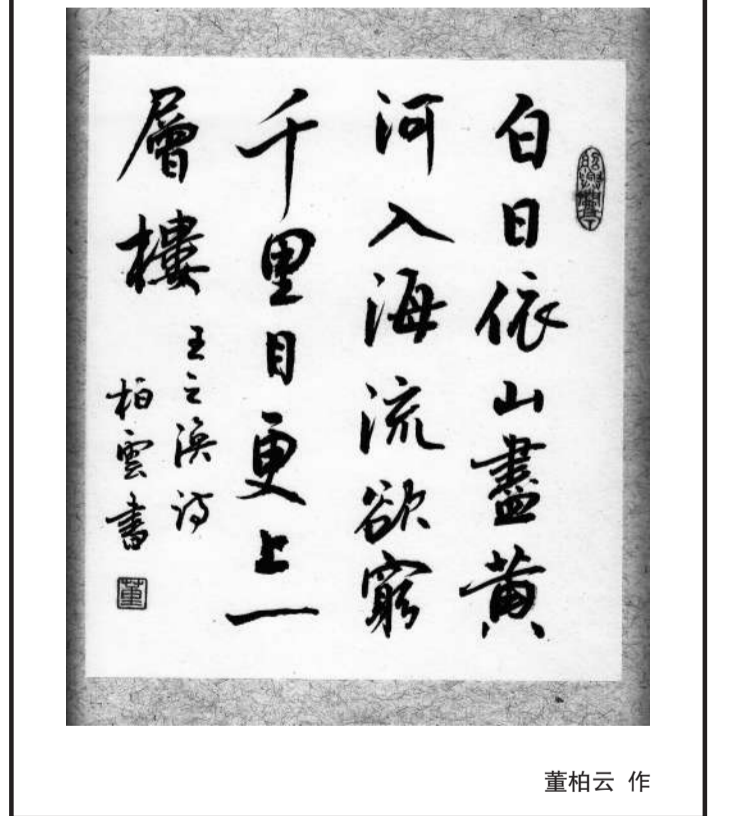 白日依山盡黄
河入海流欲窮
千里目更上一
層樓
王之渙诗
柏雲書
董
董柏云 作